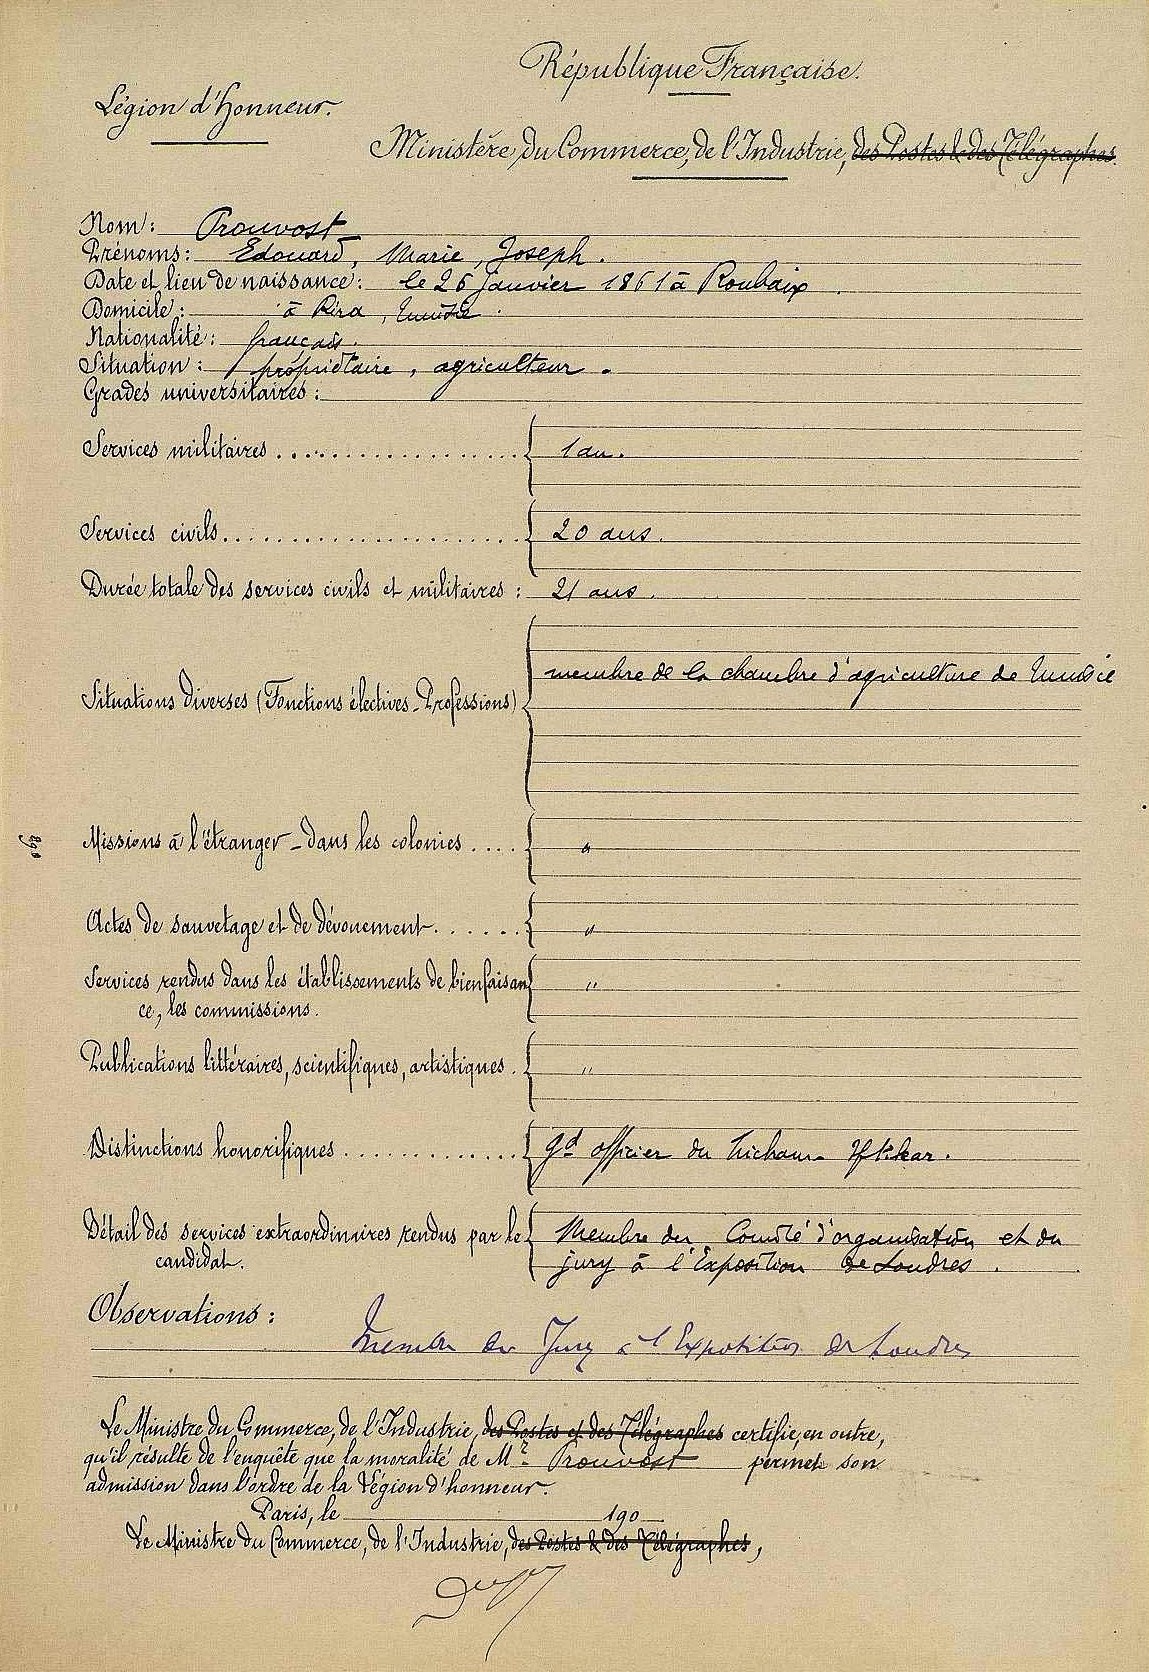 République Française.
Légion d'Honneur.
Ministère du Commerce, de l'Industrie, des Postes & des Télégraphes.
Nom: Prouvost
Prénoms: Edouard, Marie, Joseph.
Date et lieu de naissance: le 26 janvier 1861 à Roubaix.
Domicile: à , Tunisie.
Nationalité: français.
Situation: propriétaire, agriculteur.
Grades universitaires:
Services militaires.................. 1 an.
Services civils...................... 20 ans.
Durée totale des services civils et militaires: 21 ans.
membre de la chambre d'agriculture de Tunisie
Situations diverses (Fonctions électives - Professions)
Missions à l'étranger - dans les colonies .... "
Actes de sauvetage et de dévouement...... "
Services rendus dans les établissements de bienfaisan "
ce, les commissions.
Publications littéraires, scientifiques, artistiques. "
Distinctions honorifiques ............. gd officier du Nicham Iftikar.
Détail des services extraordinaires rendus par le Membre du Comité d'organisation et du
candidat. jury à l'Exposition de Londres.
Observations:
Membre du Jury à l'Exposition de Londres
Le Ministre du Commerce, de l'Industrie, des Postes et des Télégraphes certifie, en outre,
qu'il résulte de l'enquête que la moralité de Mr Prouvost permet son
admission dans l'ordre de la Légion d'honneur.
Paris, le 190
Le Ministre du Commerce, de l'Industrie, des Postes & des Télégraphes,